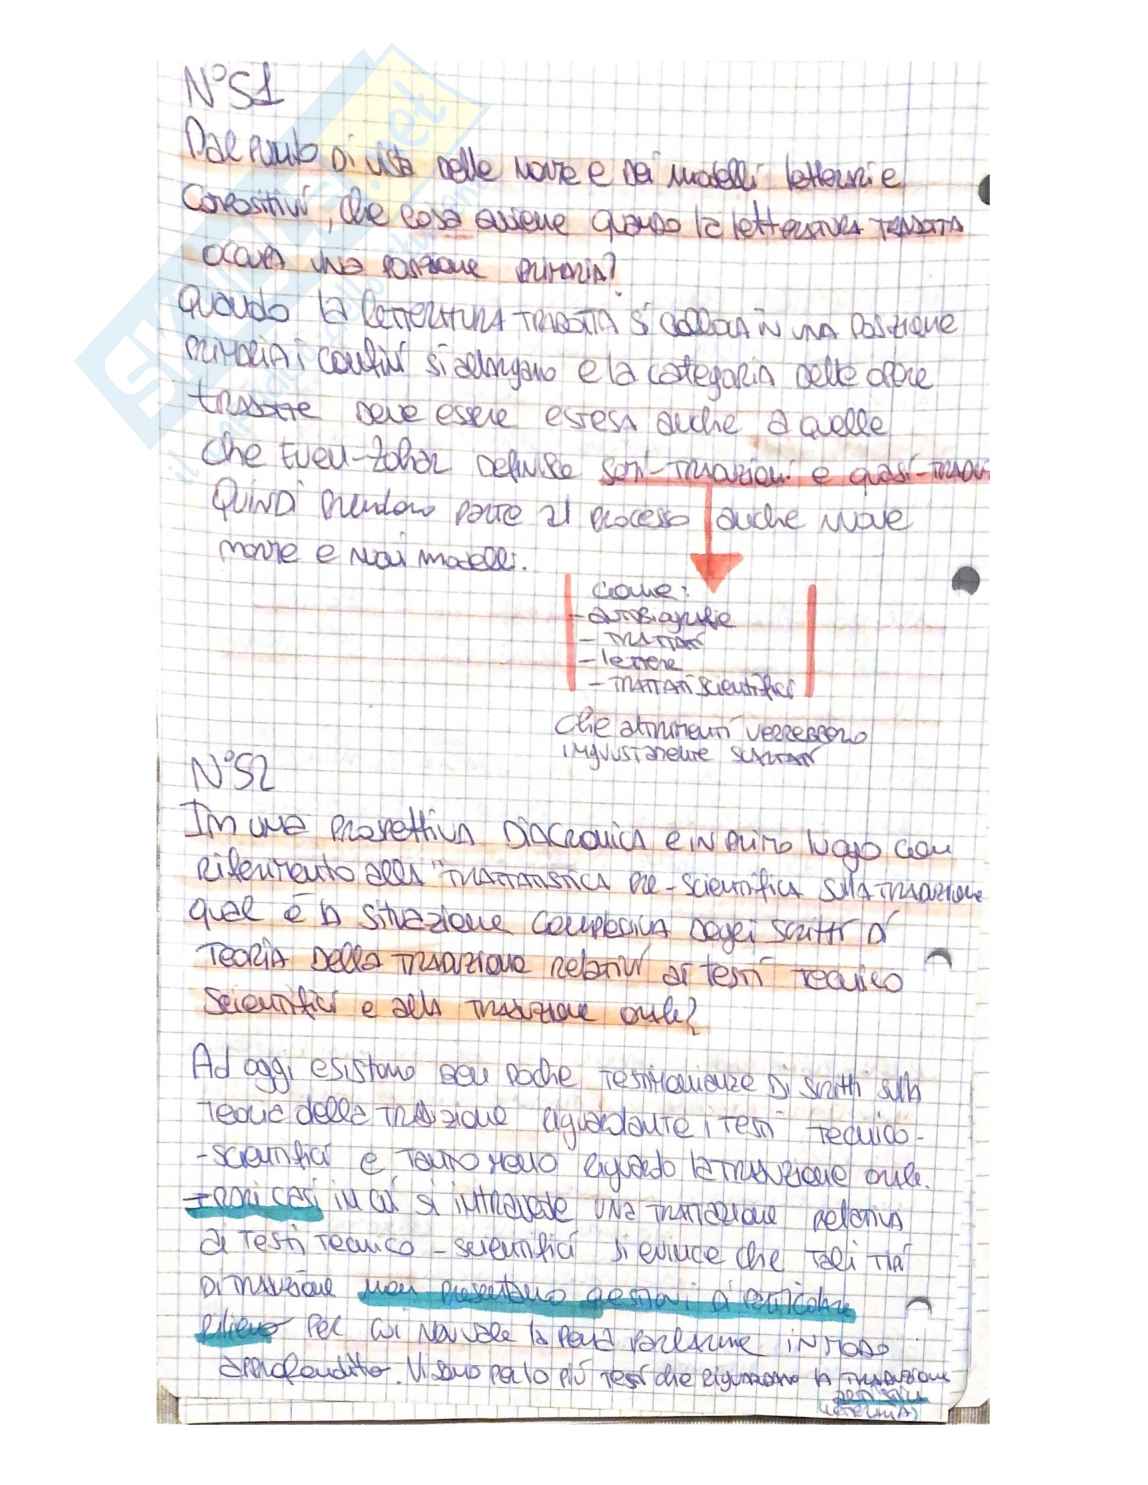 N°51
Dal punto di vista delle norme e dei modelli letterari e
compositivi, che cosa avviene quando la letteratura tradotta
occupa una posizione primaria?
Quando la letteratura tradotta si colloca in una posizione
primaria i confini si allungano e la categoria delle opere
tradotte deve essere estesa anche a quelle
che Even-Zohar definisce semi-traduzioni e quasi-traduz
Quindi prendono parte al processo anche nuove
norme e nuovi modelli.
come:
- autobiografie
- TRATTATI
- lettere
- TRATTATI scientifici
che altrimenti verrebbero
ingiustamente scartati
N°52
In una prospettiva diacronica e in primo luogo con
riferimento alla "trattatistica pre-scientifica sulla traduzione
qual è la situazione complessiva degli scritti di
teoria della traduzione relativi ai testi tecnico
scientifici e alla traduzione orale?
Ad oggi esistono ben poche testimonianze di scritti sulla
teoria della traduzione riguardante i testi tecnico-
-scientifici e tanto meno riguardo la traduzione orale.
I rari casi in cui si intravede una trattazione relativa
ai testi tecnico-scientifici si evince che tali tipi
di traduzione non presentano questioni di particolare
rilievo per cui non vale la pena parlarne in modo
approfondito. Vi sono per lo più testi che riguardano la traduzione
letteraria)